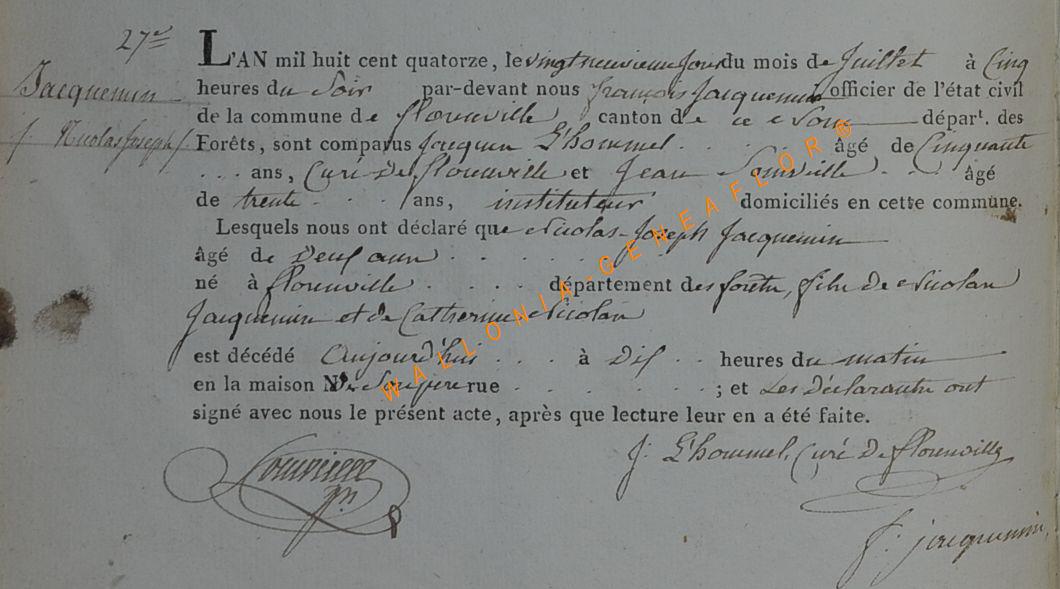 27e
Jacquemin
(Nicolas Joseph)
L'AN mil huit cent quatorze, le vingt neuvieme jour du mois de Juillet à Cinq
heures du Soir par-devant nous françois Jacquemin officier de l'état civil
de la commune de florenville canton de ce nom départ. des
Forêts, sont comparus Jacques L'hommel . . . . âgé de Cinquante
. . . ans, Curé de florenville et Jean . . âgé
de trente . . . ans, instituteur domiciliés en cette commune.
Lesquels nous ont déclaré que Nicolas-Joseph Jacquemin
âgé de Deux ans . . . . . .
né à florenville . . . . département des forêts, fils de Nicolas
Jacquemin et de Catherine Nicolas
est décédé Aujourd'hui . . . à Dix . . heures du matin
en la maison De Son père rue . . . . . . ; et Les Déclarants ont
signé avec nous le présent acte, après que lecture leur en a été faite.
J. L'hommel, Curé de florenville
f. jacquemin
WALLONIA-GENEAFLOR®